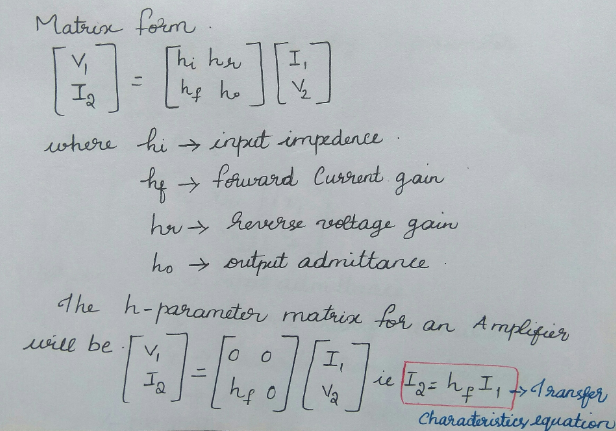 Matrix form.
[V₁ I₂] = [hi hr hf ho] [I₁ V₂]
where hi → input impedence.
hf → forward Current gain
hr → Reverse voltage gain
ho → output admittance.
The h-parameter matrix for an Amplifier
will be. [V₁ I₂] = [0 0 hf 0] [I₁ V₂] ie I₂ = hf I₁ → Transfer
Characteristics equation